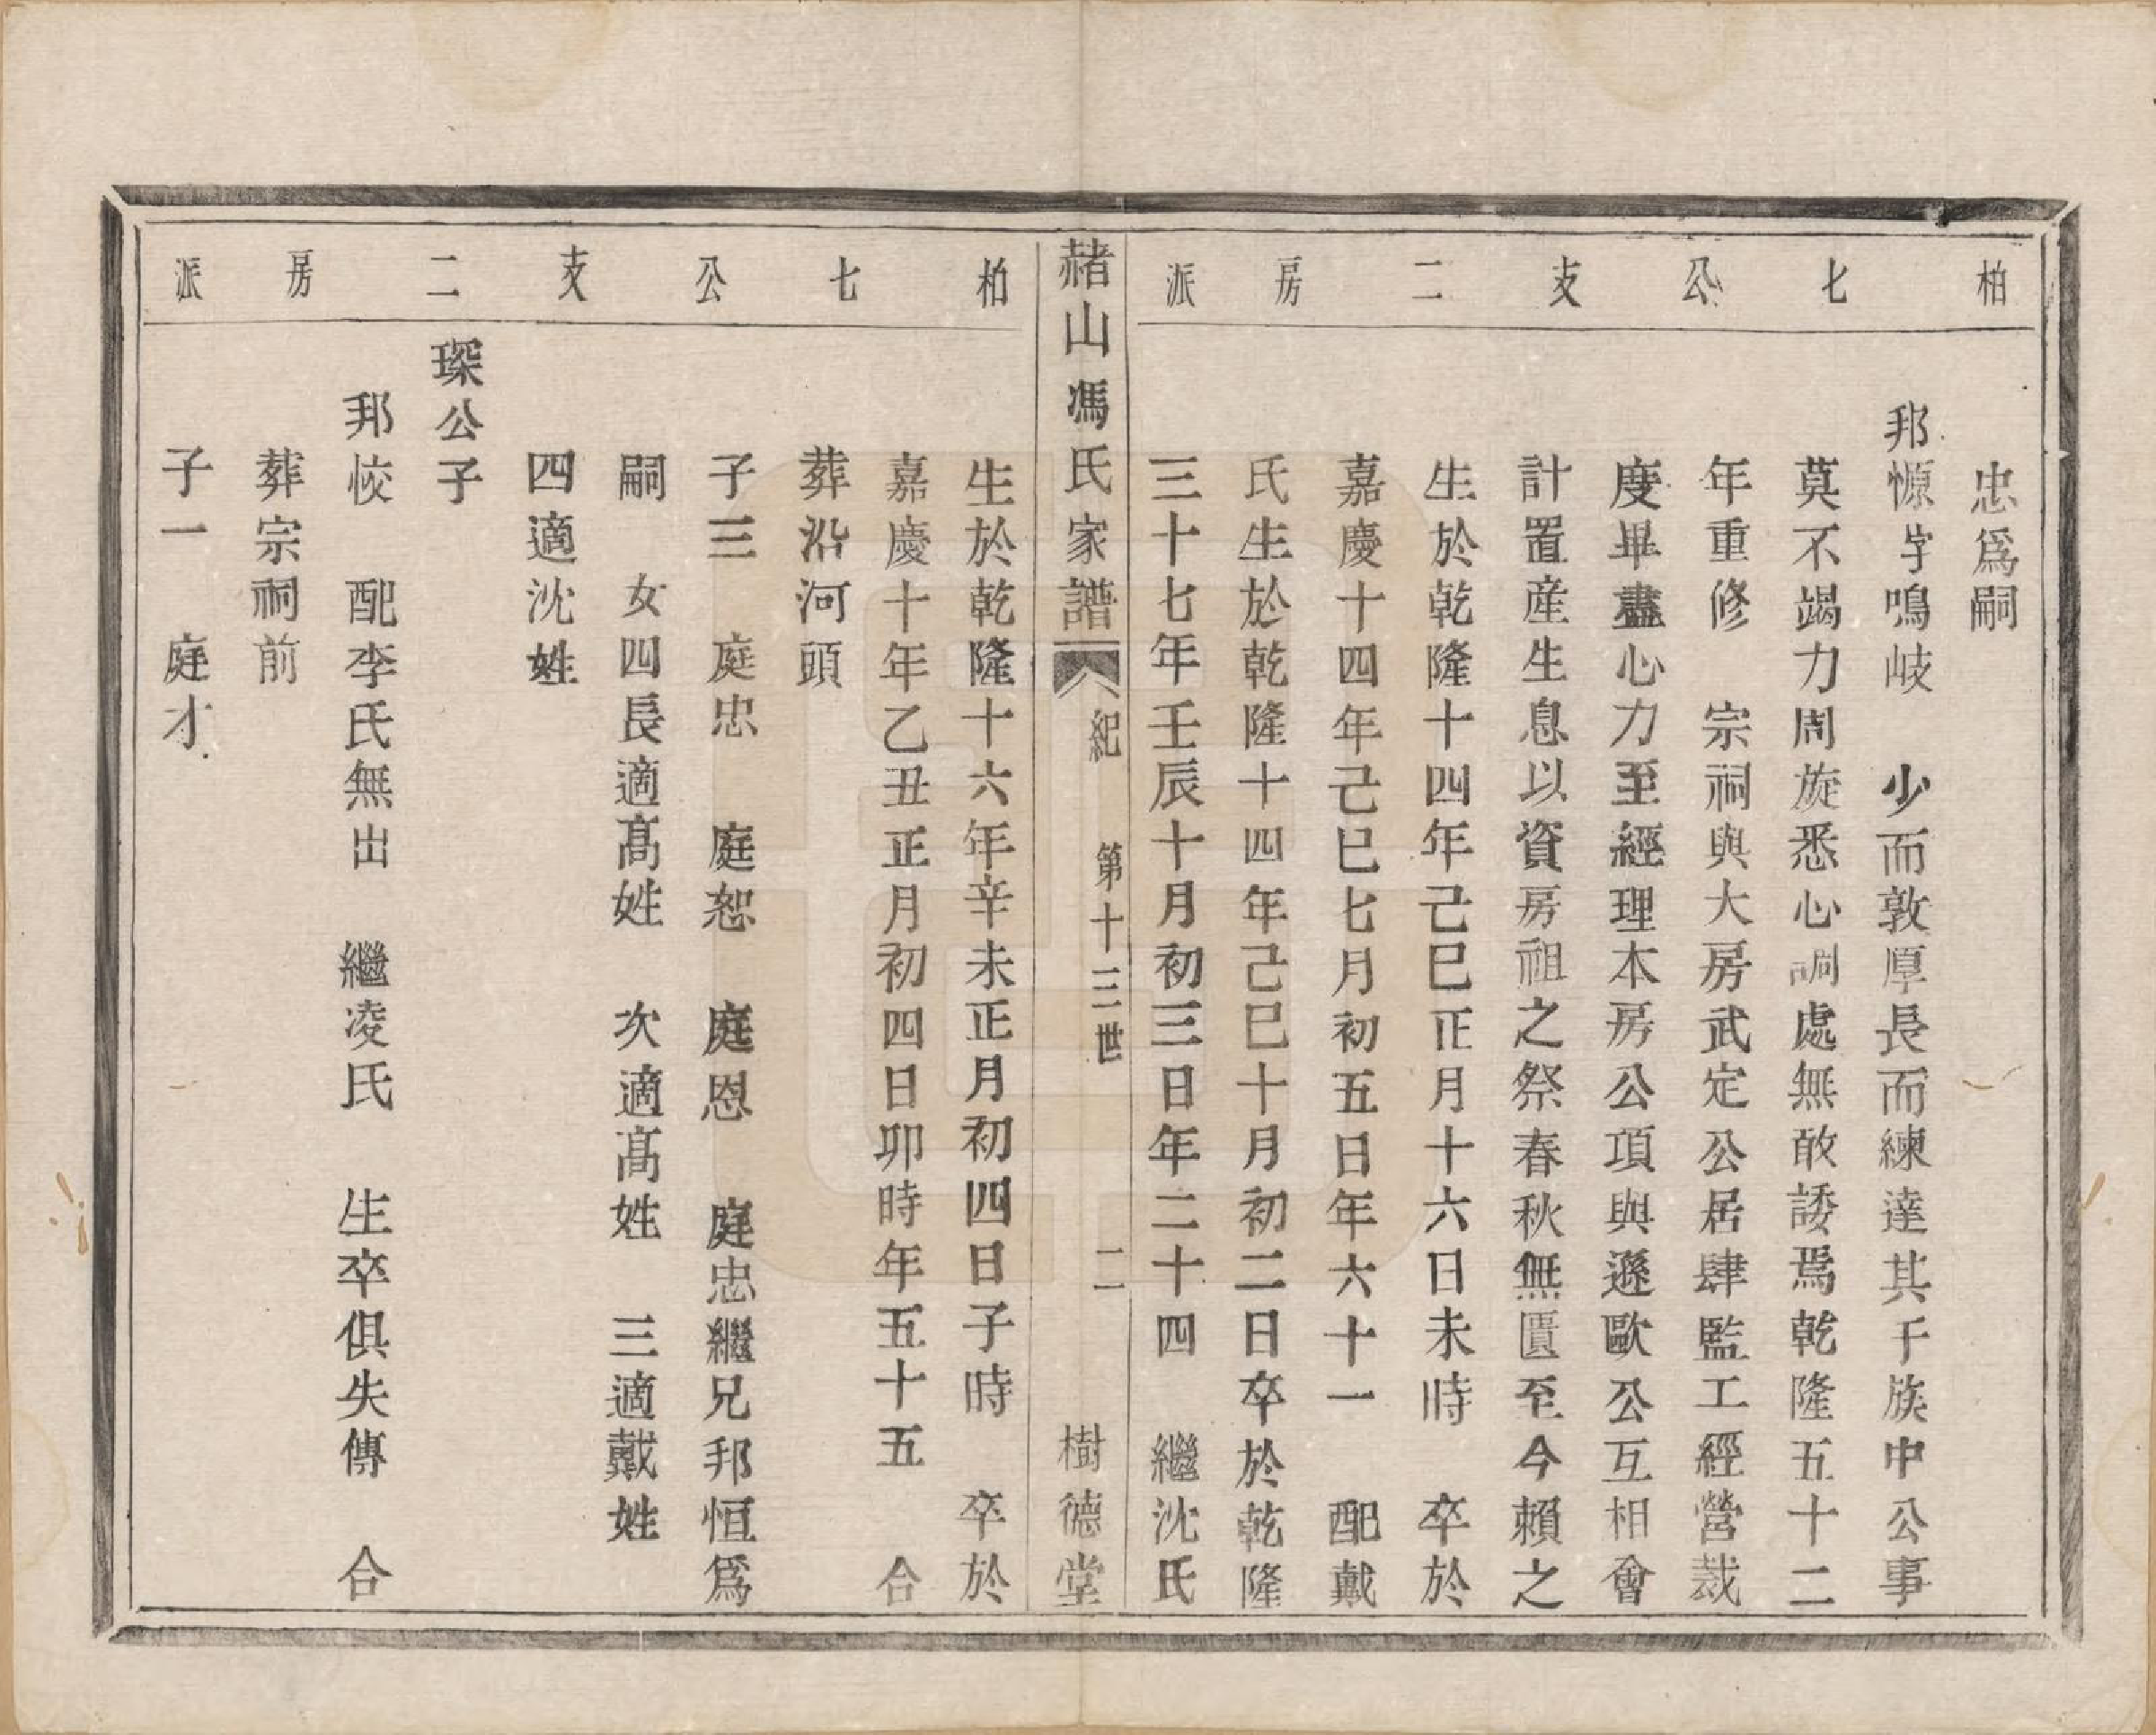 柏七公支二房派
忠爲嗣
邦愿字鳴岐　少而敦厚長而練達其于族中公事
莫不竭力周旋悉心調處無敢諉焉乾隆五十二
年重修　宗祠與大房武定公居肆監工經營裁
度畢盡心力至經理本房公項與遜歐公互相會
計置産生息以資房祖之祭春秋無匱至今賴之
生於乾隆十四年己巳正月十六日未時　卒於
嘉慶十四年己巳七月初五日年六十一　配戴
氏生於乾隆十四年己巳十月初二日卒於乾隆
三十七年壬辰十月初三日年二十四　繼沈氏
赭山馮氏家譜　紀　第十三世　二　樹德堂
柏七公支二房派
生於乾隆十六年辛未正月初四日子時　卒於
嘉慶十年乙丑正月初四日卯時年五十五　合
葬沿河頭
子三　庭忠　庭恕　庭恩　庭忠繼兄邦恒爲
嗣　女四長適高姓　次適高姓　三適戴姓
四適沈姓
琛公子
邦恔　配李氏無出　繼凌氏　生卒俱失傳　合
葬宗祠前
子一　庭才